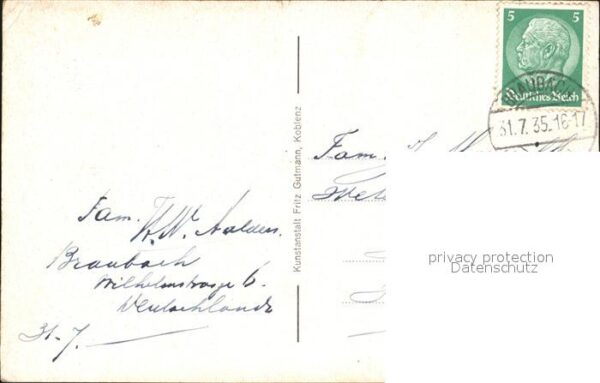 5 5
Deutsches Reich
BRAUBACH
31.7.35.16-17
Fam.
Kunstanstalt Fritz Gutmann, Koblenz
Fam.
K.W. Aalders.
Braubach
Wilhelmstrasse 6.
Deutschland
31-7.
privacy protection
Datenschutz